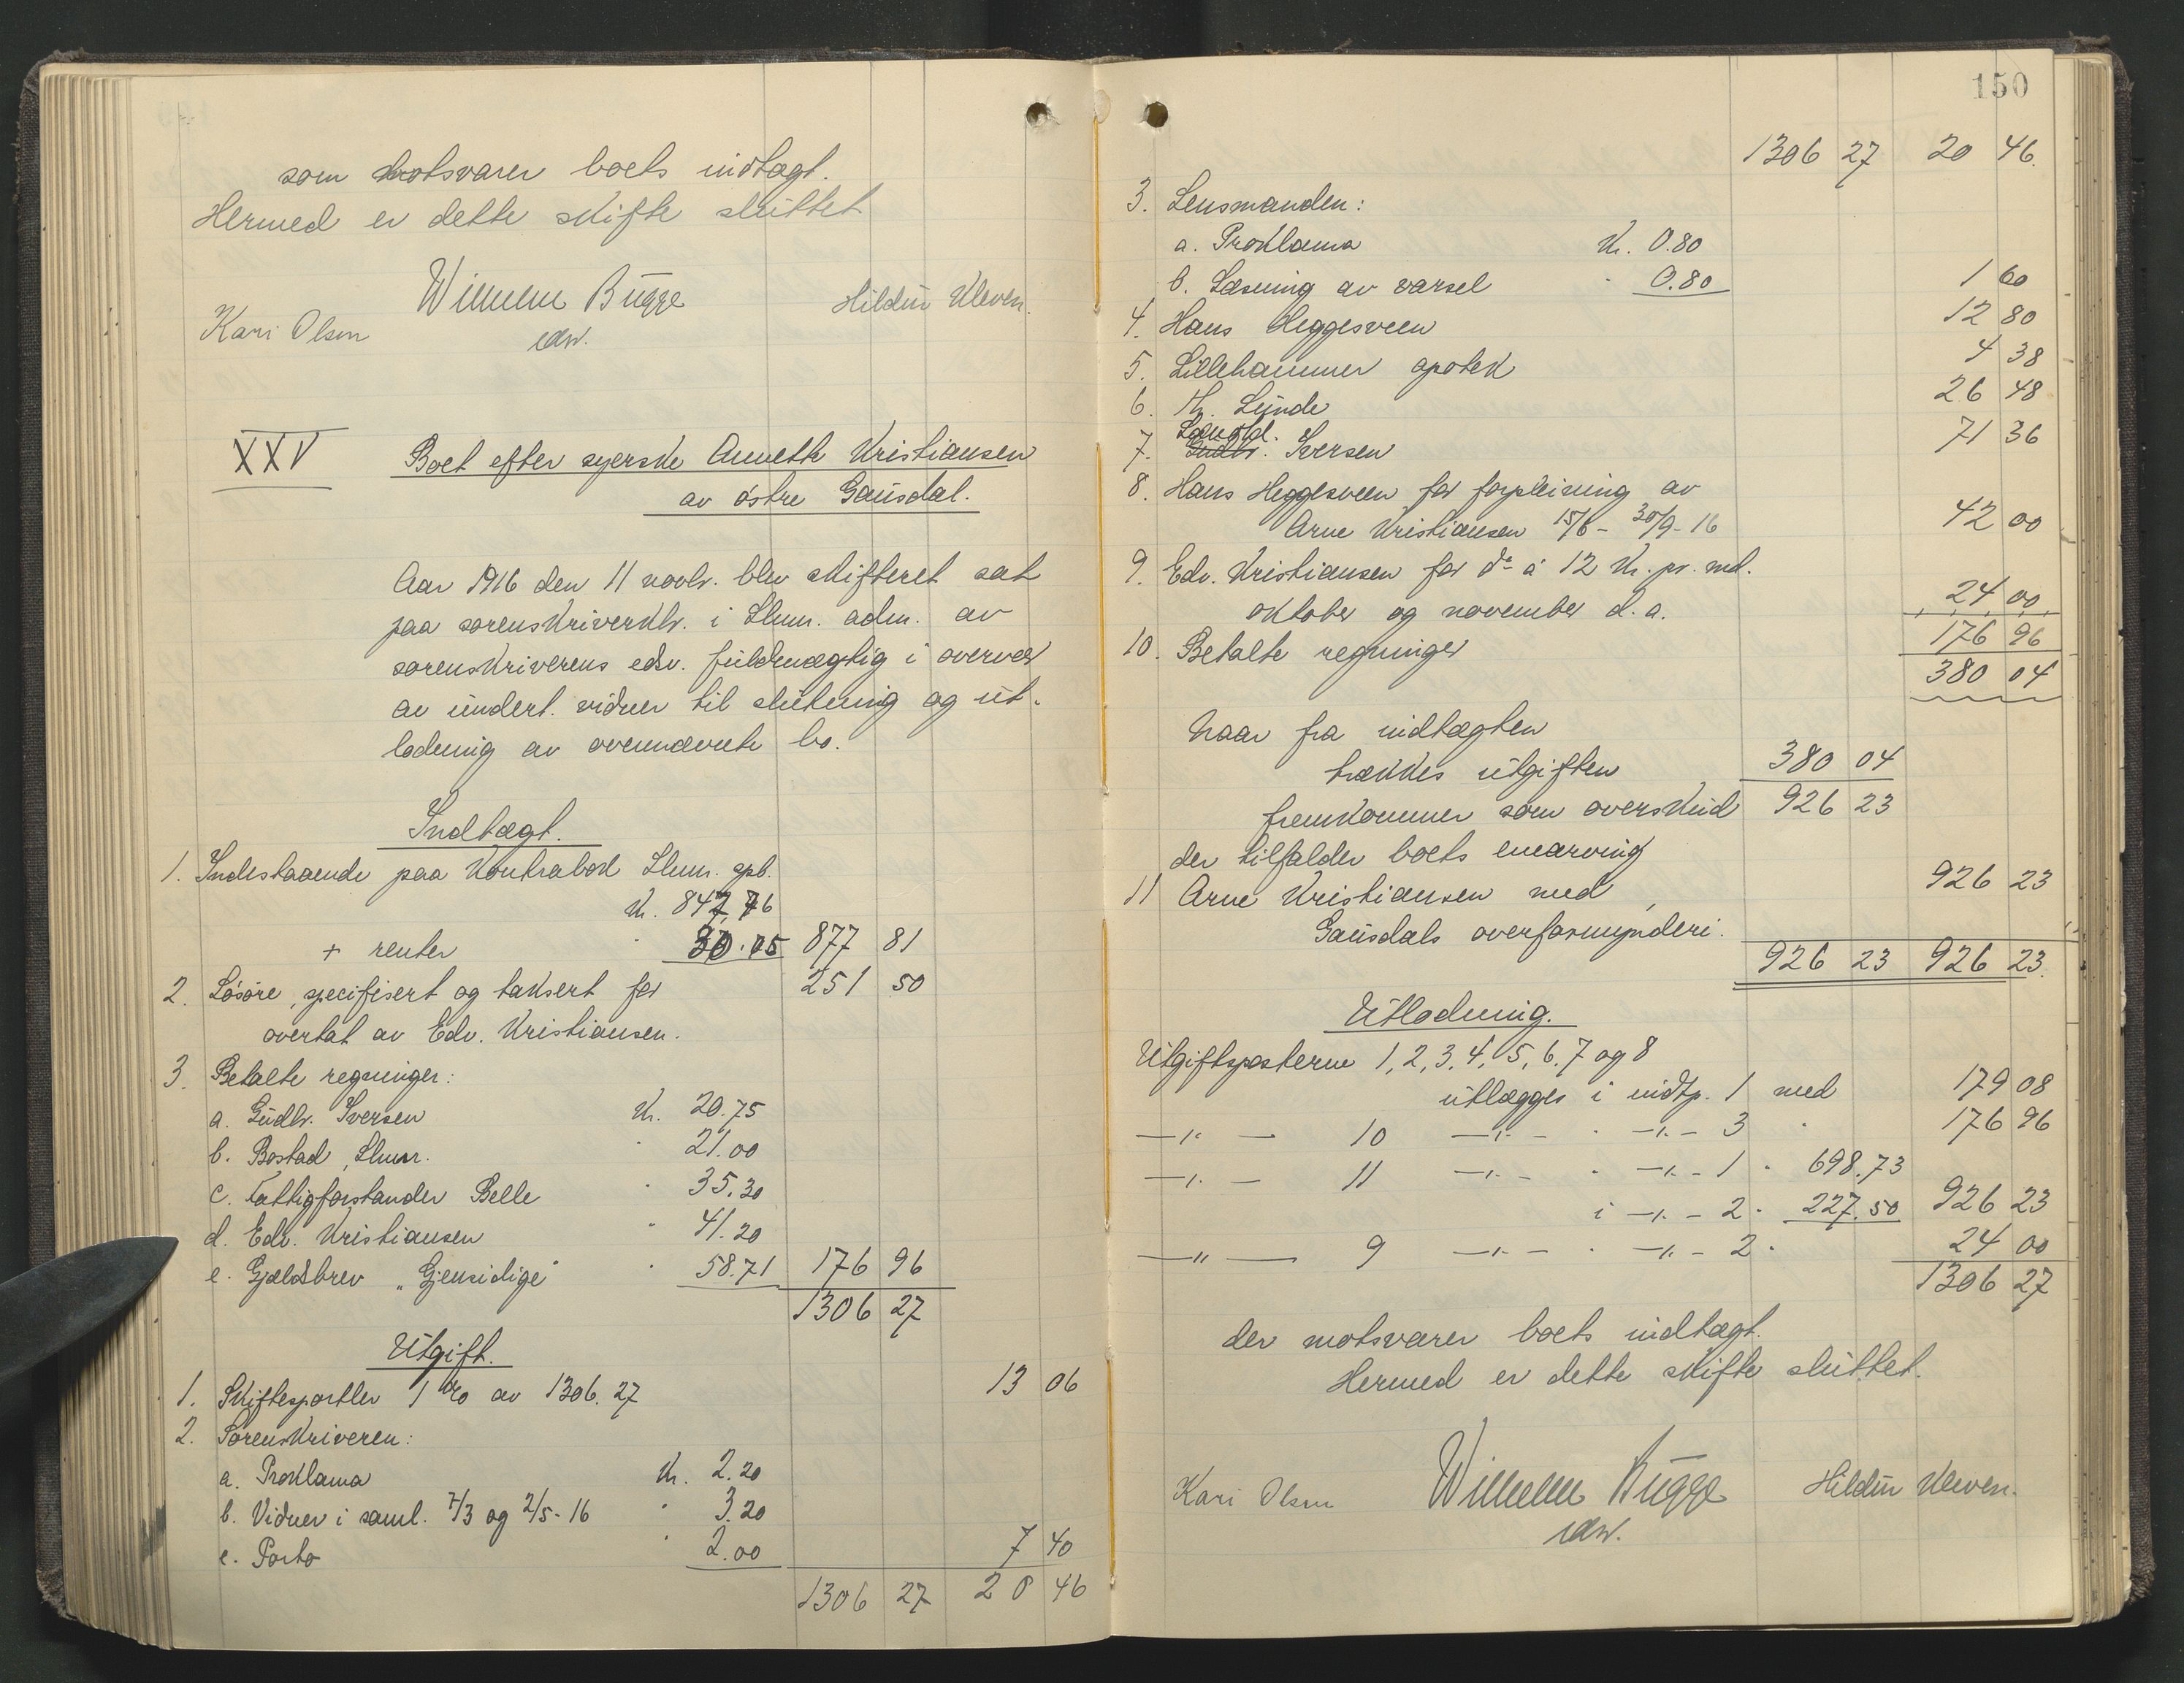 som motsvarer boets indtægt.
Hermed er dette skifte sluttet
Wilhelm Bugge
edv.
Kari Olsen
Hildur Kleven.
XXV
Boet efter syerske Annette Kristiansen
av østre Gausdal.
Aar 1916 den 11 novbr. blev skifteret sat
paa sorenskriverktr. i Lhmr. adm. av
sorenskriverens edv. fuldmægtig i overvær
av undert. vidner til slutning og ut-
lodning av ovennævnte bo.
Indtægt.
1. Indestaaende paa Kontrabok Lhmr. spb.
Kr. 847,76
+ renter " 30.05 877 81
2. Løsøre, specifisert og taksert for 251 50
overtat av Edv. Kristiansen.
3. Betalte regninger:
a. Gudbr. Iversen Kr. 20.75
b. Bostad, Lhmr. " 21.00
c. Fattigforstander Belle " 35.30
d. Edv. Kristiansen " 41.20
e. Gjeldsbrev "Gjensidige" " 58.71 176 96
1306 27
Utgift.
1. Skiftesportler 1 % av 1306.27 13 06
2. Sorenskriveren:
a. Proklama Kr. 2.20
b. Vidner i saml. 7/3 og 2/5-16 " 3.20
c. Porto " 2.00 7 40
1306 27 20 46
150
1306 27 20 46.
3. Lensmanden:
a. Proklama Kr. 0.80
b. Læsning av varsel " 0.80 1 60
4. Hans Heggesveen 12 80
5. Lillehammer apotek 4 38
6. Th. Lunde 26 48
Landhl.
7. Gudbr. Iversen 71 36
8. Hans Heggesveen for forpleining av
Arne Kristiansen 15/6 - 30/9-16 42 00
9. Edv. Kristiansen for do à 12 Kr. pr. md.
oktober og november d.a. 24 00
10. Betalte regninger 176 96
380 04
Naar fra indtægten
trækkes utgiften 380 04
fremkommer som overskud 926 23
der tilfalder boets enearving
11 Arne Kristiansen med 926 23
Gausdals overformynderi.
926 23 926 23.
Utlodning.
Utgiftsposterne 1, 2, 3, 4, 5, 6, 7 og 8
utlægges i indtp. 1 med 179 08
—"— 10 —"— " —"— 3 " 176 96
—"— 11 —"— " —"— 1 " 698.73
i —"— 2 " 227.50 926 23
—"— 9 —"— " —"— 2 " 24 00
1306 27
der motsvarer boets indtægt.
Hermed er dette skifte sluttet.
Kari Olsen
Wilhelm Bugge
edv.
Hildur Kleven.